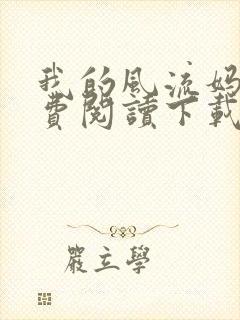 我的风流妈
費閱讀下載
嚴立學